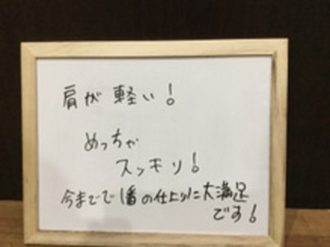 肩が軽い!
めっちゃ
スッキリ!
今までで1番の仕上りに大満足
です!